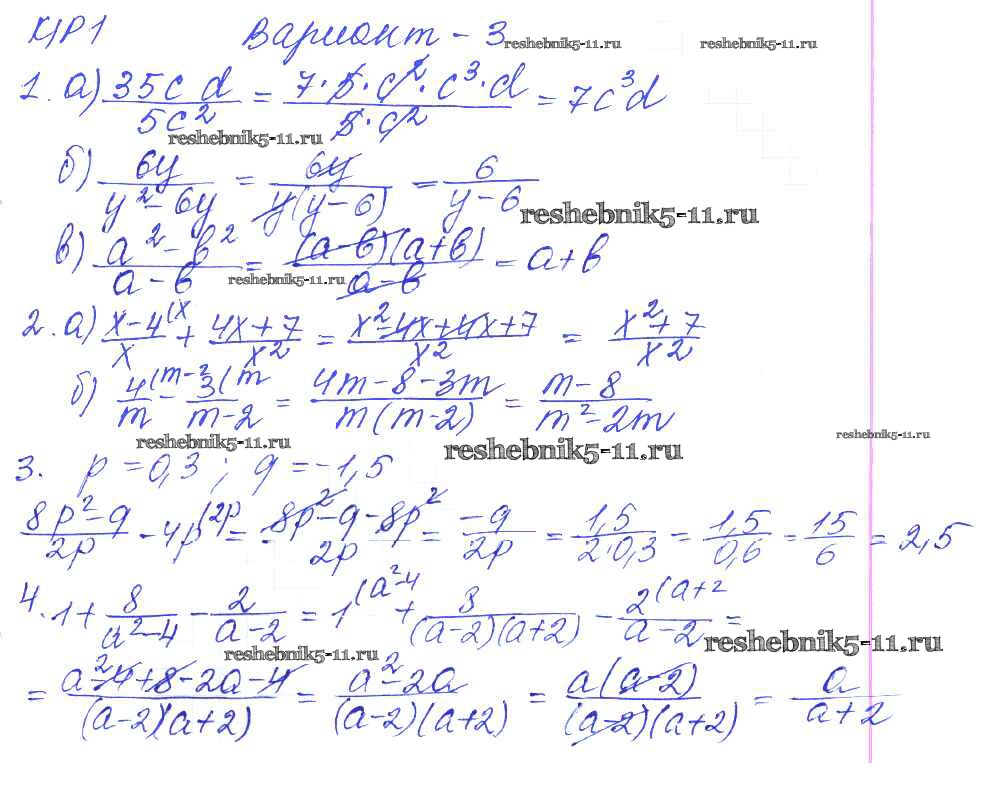 К/Р1 Вариант - 3 reshebnik5-11.ru reshebnik5-11.ru
1. а) 35c d / 5c² = 7·5·c²·c³·d / 5·c² = 7c³d
reshebnik5-11.ru
б) 6y / y²-6y = 6y / y(y-6) = 6 / y-6
reshebnik5-11.ru
в) a²-b² / a-b = (a-b)(a+b) / a-b = a+b
reshebnik5-11.ru
2. а) x-4(x / x + 4x+7 / x² = x²-4x+4x+7 / x² = x²+7 / x²
б) 4(m-2 / m - 3(m / m-2 = 4m-8-3m / m(m-2) = m-8 / m²-2m
reshebnik5-11.ru reshebnik5-11.ru reshebnik5-11.ru
3. p=0,3; q=-1,5
8p²-q / 2p - 4p(2p = 8p²-q-8p² / 2p = -q / 2p = 1,5 / 2·0,3 = 1,5 / 0,6 = 15 / 6 = 2,5
4. 1+ 8 / a²-4 - 2 / a-2 = 1(a²-4 + 8 / (a-2)(a+2) - 2(a+2 / a-2 =
reshebnik5-11.ru reshebnik5-11.ru
= a²-4+8-2a-4 / (a-2)(a+2) = a²-2a / (a-2)(a+2) = a(a-2) / (a-2)(a+2) = a / a+2